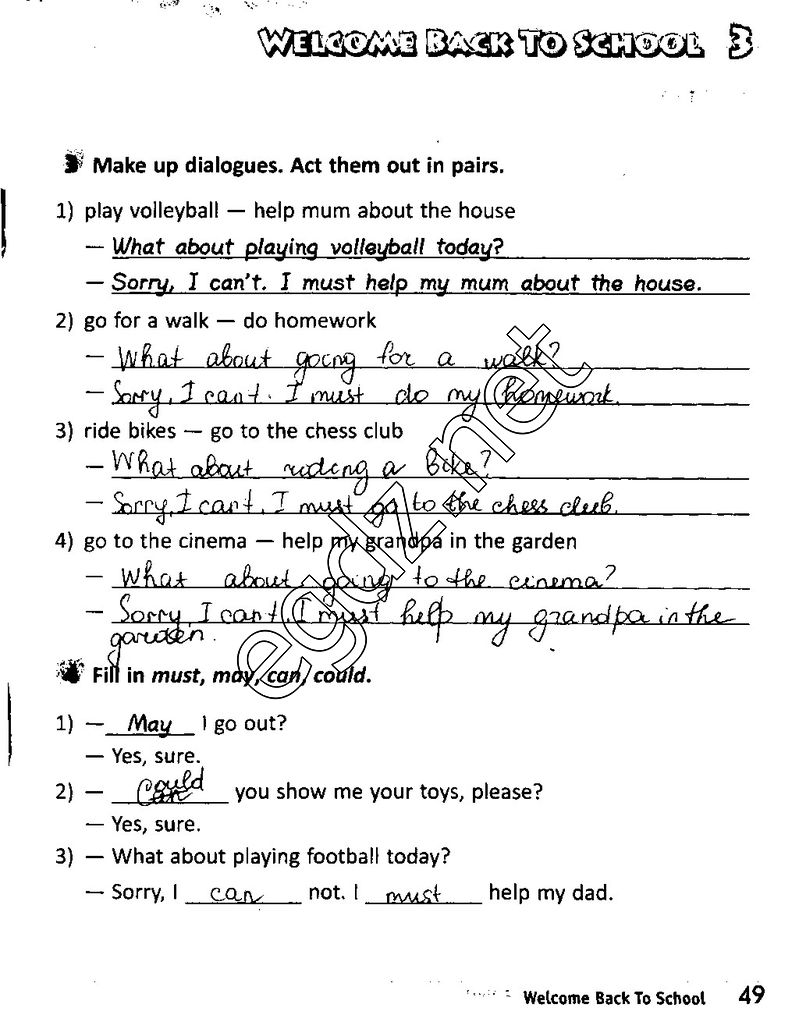 WELCOME BACK TO SCHOOL 3
3 Make up dialogues. Act them out in pairs.
1) play volleyball — help mum about the house
— What about playing volleyball today?
— Sorry, I can't. I must help my mum about the house.
2) go for a walk — do homework
— What about going for a walk?
— Sorry, I cant. I must do my homework.
3) ride bikes — go to the chess club
— What about riding a bike?
— Sorry, I cant. I must go to the chess club.
4) go to the cinema — help my grandpa in the garden
— What about going to the cinema?
— Sorry, I cant. I must help my grandpa in the
garden.
4 Fill in must, may, can, could.
1) — May I go out?
— Yes, sure.
2) — Could you show me your toys, please?
— Yes, sure.
3) — What about playing football today?
— Sorry, I can not. I must help my dad.
Welcome Back To School 49
egdz.net